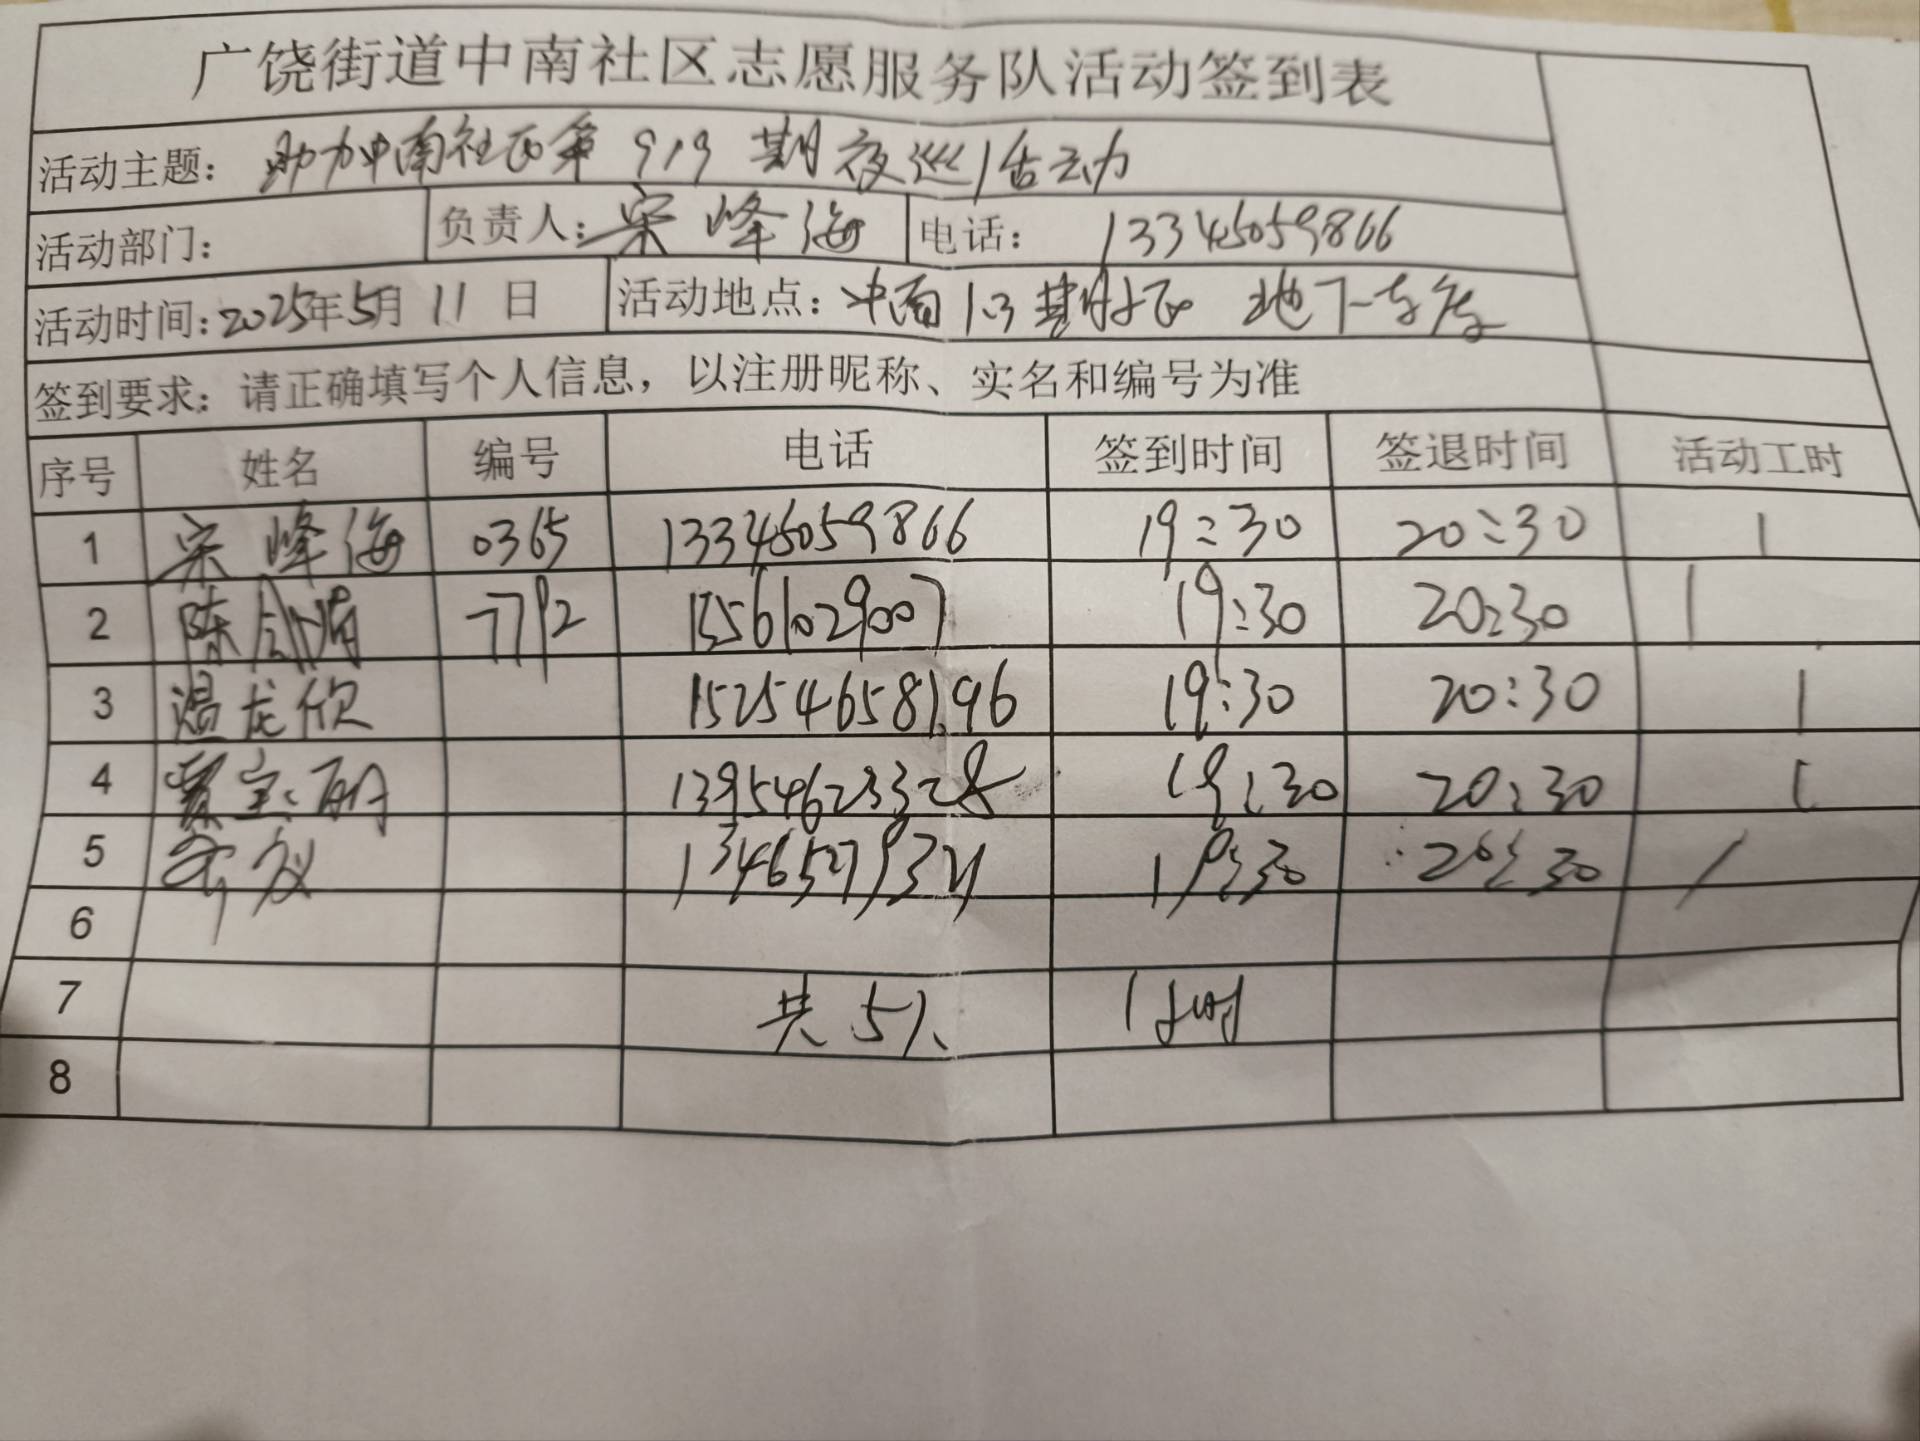 广饶街道中南社区志愿服务队活动签到表
活动主题: 助力中南社区第919期夜巡活动
活动部门: 负责人: 宋峰海 电话: 13345059866
活动时间: 2025年5月11日 活动地点: 中南1.3期 地下车库
签到要求: 请正确填写个人信息，以注册昵称、实名和编号为准
序号 姓名 编号 电话 签到时间 签退时间 活动工时
1 宋峰海 0365 13345059866 19:30 20:30 1
2 陈 7792 15561029007 19:30 20:30 1
3 温龙欣 15254658196 19:30 20:30 1
4 19:30 20:30 1
5 19:30 20:30 1
6
7 共5人 1小时
8